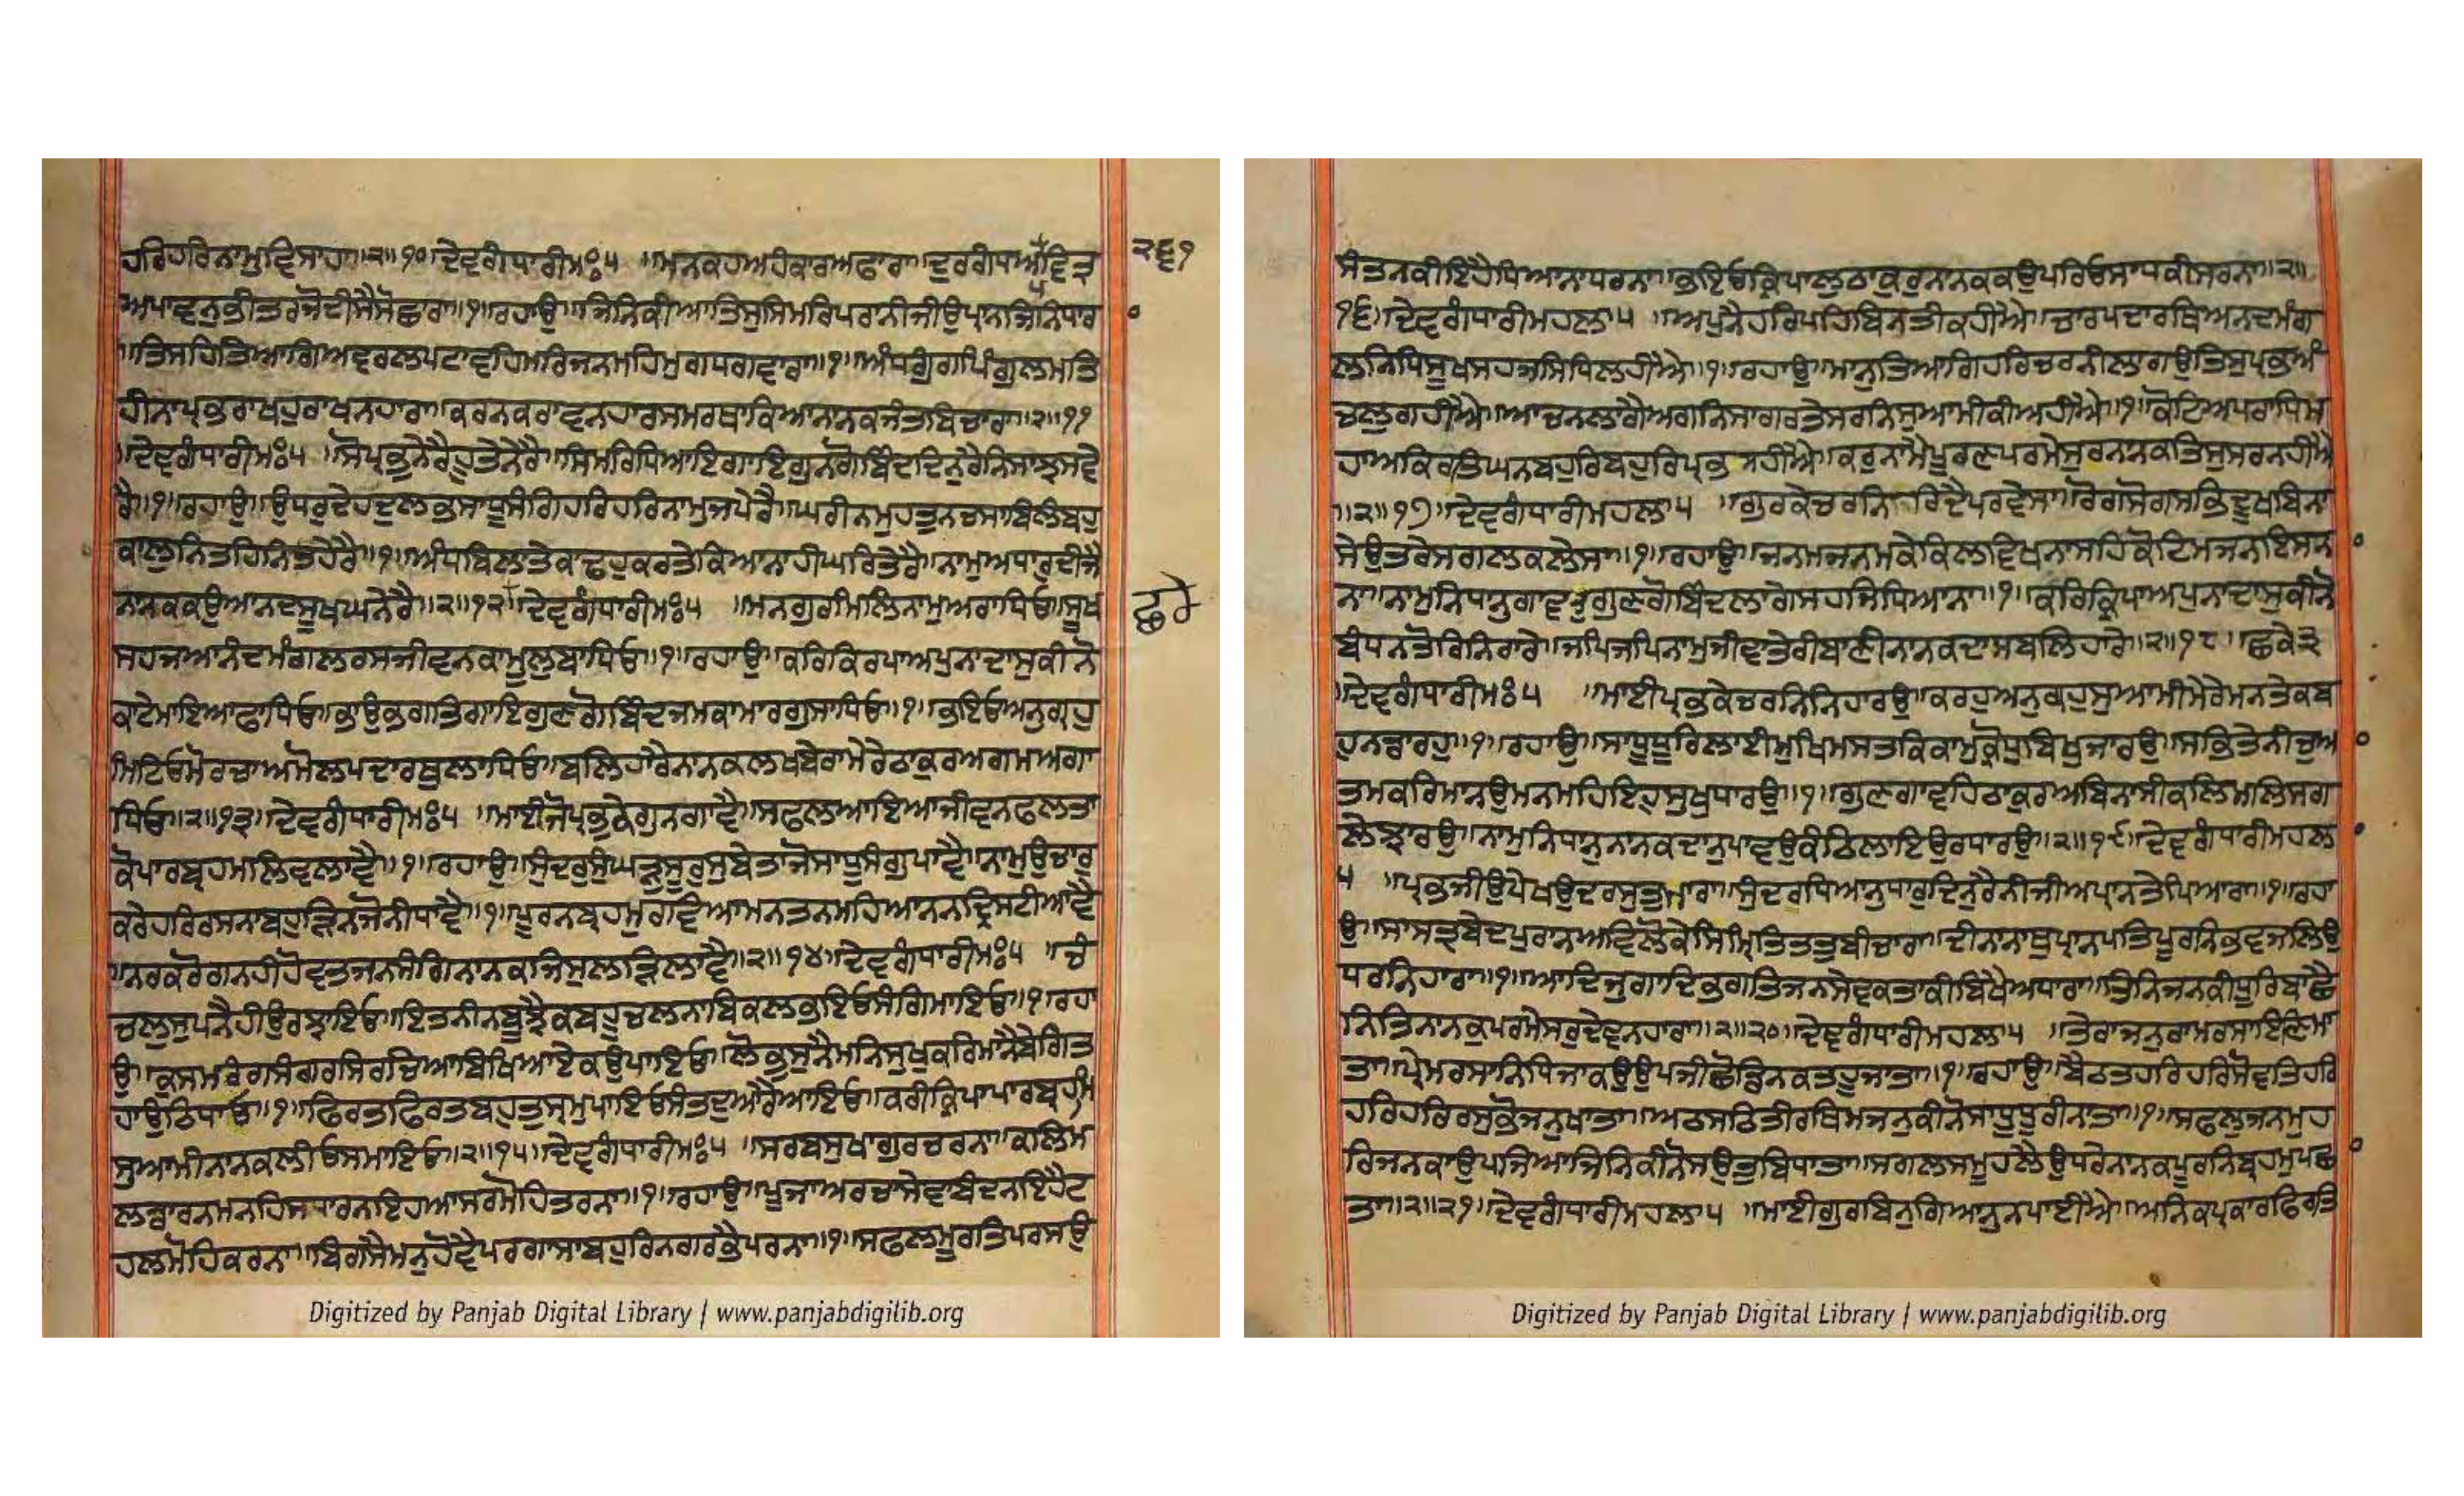 ਹਰਿਹਰਿਨਾਮੁਵਿਸਾਹਾ॥੨॥੧੦॥ਦੇਵਗੰਧਾਰੀਮਃ੫ ॥ਮਨਕਹਅਹੰਕਾਰਅਫਾਰਾ॥ਦੁਰਗੰਧਅਪਵਿਤ੍ਰ
ਅਪਾਵਨੁਭੀਤਰਜੋਦੀਸੈਸੋਛਾਰਾ॥੧॥ਰਹਾਉ॥ਜਿਨਿਕੀਆਤਿਸੁਸਿਮਰਿਪਰਾਨੀਜੀਉਪ੍ਰਾਨਜਿਨਿਧਾਰਾ
॥ਤਿਸਹਿਤਿਆਗਿਅਵਰਲਪਟਾਵਹਿਮਰਿਜਨਮਹਿਮੁਗਧਗਵਾਰਾ॥੧॥ਅੰਧਗੁੰਗਪਿੰਗੁਲਮਤਿ
ਹੀਨਾਪ੍ਰਭਰਾਖਹੁਰਾਖਨਹਾਰਾ॥ਕਰਨਕਰਾਵਨਹਾਰਸਮਰਥਾਕਿਆਨਾਨਕਜੰਤਬਿਚਾਰਾ॥੨॥੧੧
॥ਦੇਵਗੰਧਾਰੀਮਃ੫ ॥ਸੋਪ੍ਰਭੁਨੇਰੈਹੂਤੇਨੇਰੈ॥ਸਿਮਰਿਧਿਆਇਗਾਇਗੁਨਗੋਬਿੰਦਦਿਨੁਰੈਨਿਸਾਝਸਵੇ
ਰੈ॥੧॥ਰਹਾਉ॥ਉਧਰੁਦੇਹਦੁਲਭਸਾਧੂਸੰਗਿਹਰਿਹਰਿਨਾਮੁਜਪੇਰੈ॥ਘਰੀਨਮੁਹਤੁਨਚਸਾਬਿਲੰਬਹੁ
ਕਾਲੁਨਿਤਹਿਨਿਤਹੇਰੈ॥੧॥ਅੰਧਬਿਲਾਤੇਕਾਢਹੁਕਰਤੇਕਿਆਨਾਹੀਘਰਿਤੇਰੈ॥ਨਾਮੁਅਧਾਰੁਦੀਜੈ
ਨਾਨਕਕਉਆਨਦਸੂਖਘਨੇਰੈ॥੨॥੧੨॥ਦੇਵਗੰਧਾਰੀਮਃ੫ ॥ਮਨਗੁਰਮਿਲਿਨਾਮੁਅਰਾਧਿਓ॥ਸੂਖ
ਸਹਜਆਨੰਦਮੰਗਲਰਸਜੀਵਨਕਾਮੂਲੁਬਾਧਿਓ॥੧॥ਰਹਾਉ॥ਕਰਿਕਿਰਪਾਅਪੁਨਾਦਾਸੁਕੀਨੋ
ਕਾਟੇਮਾਇਆਫਾਧਿਓ॥ਭਾਉਭਗਤਿਗਾਇਗੁਣਗੋਬਿੰਦਜਮਕਾਮਾਰਗੁਸਾਧਿਓ॥੧॥ਭਇਓਅਨੁਗ੍ਰਹੁ
ਮਿਟਿਓਮੋਰਚਾਅਮੋਲਪਦਾਰਥੁਲਾਧਿਓ॥ਬਲਿਹਾਰੈਨਾਨਕਲਖਬੇਰਾਮੇਰੇਠਾਕੁਰਅਗਮਅਗਾ
ਧਿਓ॥੨॥੧੩॥ਦੇਵਗੰਧਾਰੀਮਃ੫ ॥ਮਾਈਜੋਪ੍ਰਭਕੇਗੁਨਗਾਵੈ॥ਸਫਲਆਇਆਜੀਵਨਫਲਤਾ
ਕੋਪਾਰਬ੍ਰਹਮਲਿਵਲਾਵੈ॥੧॥ਰਹਾਉ॥ਸੁੰਦਰੁਸੁਘੜੁਸੂਰੁਸੁਬੇਤਾਜੋਸਾਧੂਸੰਗੁਪਾਵੈ॥ਨਾਮੁਉਚਾਰੁ
ਕਰੇਹਰਿਰਸਨਾਬਹੁੜਿਨਜੋਨੀਧਾਵੈ॥੧॥ਪੂਰਨਬ੍ਰਹਮੁਰਵਿਆਮਨਤਨਮਹਿਆਨਨਦ੍ਰਿਸਟੀਆਵੈ
॥ਨਰਕਰੋਗਨਹੀਹੋਵਤਜਨਸੰਗਿਨਾਨਕਜਿਸੁਲੜਿਲਾਵੈ॥੨॥੧੪॥ਦੇਵਗੰਧਾਰੀਮਃ੫ ॥ਚੰ
ਚਲੁਸੁਪਨੈਹੀਉਰਝਾਇਓ॥ਇਤਨੀਨਬੂਝੈਕਬਹੂਚਲਨਾਬਿਕਲਭਇਓਸੰਗਿਮਾਇਓ॥੧॥ਰਹਾ
ਉ॥ਕੁਸਮਰੰਗਸੰਗਰਸਿਰਚਿਆਬਿਖਿਆਏਕਉਪਾਇਓ॥ਲੋਭਸੁਨੈਮਨਿਸੁਖੁਕਰਿਮਾਨੈਬੇਗਿਤ
ਹਾਉਠਿਧਾਇਓ॥੧॥ਫਿਰਤਫਿਰਤਬਹੁਤੁਸ੍ਰਮੁਪਾਇਓਸੰਤਦੁਆਰੈਆਇਓ॥ਕਰੀਕ੍ਰਿਪਾਪਾਰਬ੍ਰਹਮਿ
ਸੁਆਮੀਨਾਨਕਲੀਓਸਮਾਇਓ॥੨॥੧੫॥ਦੇਵਗੰਧਾਰੀਮਃ੫ ॥ਸਰਬਸੁਖਾਗੁਰਚਰਨਾ॥ਕਲਿਮ
ਲਡਾਰਨਮਨਹਿਸਧਾਰਨਇਹਆਸਰਮੋਹਿਤਰਨਾ॥੧॥ਰਹਾਉ॥ਪੂਜਾਅਰਚਾਸੇਵਾਬੰਦਨਇਹੈਟ
ਹਲਮੋਹਿਕਰਨਾ॥ਬਿਗਸੈਮਨੁਹੋਵੈਪਰਗਾਸਾਬਹੁਰਿਨਗਰਭੈਪਰਨਾ॥੧॥ਸਫਲਮੂਰਤਿਪਰਸਉ
੨੬੧
ਛਕੇ
Digitized by Panjab Digital Library | www.panjabdigilib.org
ਸੰਤਨਕੀਇਹੈਧਿਆਨਾਧਰਨਾ॥ਭਇਓਕ੍ਰਿਪਾਲੁਠਾਕੁਰੁਨਾਨਕਕਉਪਰਿਓਸਾਧਕੀਸਰਨਾ॥੨॥
੧੬॥ਦੇਵਗੰਧਾਰੀਮਹਲਾ੫ ॥ਅਪੁਨੇਹਰਿਪਹਿਬਿਨਤੀਕਹੀਐ॥ਚਾਰਪਦਾਰਥਿਅਨਦਮੰਗ
ਲਨਿਧਿਸੂਖਸਹਜਸਿਧਿਲਹੀਐ॥੧॥ਰਹਾਉ॥ਮਾਨੁਤਿਆਗਿਹਰਿਚਰਨੀਲਾਗਉਤਿਸੁਪ੍ਰਭਅੰ
ਚਲੁਗਹੀਐ॥ਆਚਨਲਾਗੈਅਗਨਿਸਾਗਰਤੇਸਰਨਿਸੁਆਮੀਕੀਅਹੀਐ॥੧॥ਕੋਟਿਅਪਰਾਧਿਮ
ਹਾਅਕਿਰਤਿਘਨਬਹੁਰਿਬਹੁਰਿਪ੍ਰਭਸਹੀਐ॥ਕਰੁਨਾਮੈਪੂਰਣਪਰਮੇਸੁਰਨਾਨਕਤਿਸੁਸਰਨਹੀਐ
॥੨॥੧੭॥ਦੇਵਗੰਧਾਰੀਮਹਲਾ੫ ॥ਗੁਰਕੇਚਰਨਿਰਿਦੈਪਰਵੇਸਾ॥ਰੋਗਸੋਗਸਭਿਦੂਖਬਿਨਾ
ਸੇਉਤਰੇਸਗਲਕਲੇਸਾ॥੧॥ਰਹਾਉ॥ਜਨਮਜਨਮਕੇਕਿਲਵਿਖਨਾਸਹਿਕੋਟਿਮਜਨਇਸਨ
ਨਾ॥ਨਾਮੁਨਿਧਾਨੁਗਾਵਤੁਗੁਣਗੋਬਿੰਦਲਾਗੋਸਹਜਿਧਿਆਨਾ॥੧॥ਕਰਿਕਿਰਪਾਅਪੁਨਾਦਾਸੁਕੀਨੋ
ਬੰਧਨਤੋਰਿਨਿਰਾਰੇ॥ਜਪਿਜਪਿਨਾਮੁਜੀਵਾਤੇਰੀਬਾਣੀਨਾਨਕਦਾਸਬਲਿਹਾਰੇ॥੨॥੧੮॥ਛਕੇ੩
॥ਦੇਵਗੰਧਾਰੀਮਃ੫ ॥ਮਾਈਪ੍ਰਭਕੇਚਰਨਿਨਿਹਾਰਉ॥ਕਰਹੁਅਨੁਗ੍ਰਹੁਸੁਆਮੀਮੇਰੇਮਨਤੇਕਬ
ਹੁਨਡਾਰਹੁ॥੧॥ਰਹਾਉ॥ਸਾਧੂਧੂਰਿਲਾਈਮੁਖਿਮਸਤਕਿਕਾਮਕ੍ਰੋਧੁਬਿਖੁਜਾਰਉ॥ਸਭਤੇਨੀਚੁਆ
ਤਮਕਰਿਮਾਨਉਮਨਮਹਿਇਹੁਸੁਖੁਧਾਰਉ॥੧॥ਗੁਣਗਾਵਹਿਠਾਕੁਰਅਬਿਨਾਸੀਕਲਿਮਲਿਸਗ
ਲੇਝਾਰਉ॥ਨਾਮੁਨਿਧਾਨੁਨਾਨਕਦਾਨੁਪਾਵਉਕੰਠਿਲਾਇਉਰਧਾਰਉ॥੨॥੧੯॥ਦੇਵਗੰਧਾਰੀਮਹਲ
੫ ॥ਪ੍ਰਭਜੀਉਪੇਖਉਦਰਸੁਤੁਮਾਰਾ॥ਸੁੰਦਰਧਿਆਨੁਧਾਰੁਦਿਨੁਰੈਨੀਜੀਅਪ੍ਰਾਨਤੇਪਿਆਰਾ॥੧॥ਰਹਾ
ਉ॥ਸਾਸਤ੍ਰਬੇਦਪੁਰਾਨਅਵਿਲੋਕੇਸਿਮ੍ਰਿਤਿਤਤੁਬੀਚਾਰਾ॥ਦੀਨਾਨਾਥਪ੍ਰਾਨਪਤਿਪੂਰਨਿਭਵਜਲਿਉ
ਧਰਨਿਹਾਰਾ॥੧॥ਆਦਿਜੁਗਾਦਿਭਗਤਿਜਨਸੇਵਕਤਾਕੀਬਿਖੈਅਧਾਰਾ॥ਤਿਨਿਜਨਕੀਧੂਰਿਬਾਛੈ
ਨਿਤਿਨਾਨਕੁਪਰਮੇਸਰੁਦੇਵਨਹਾਰਾ॥੨॥੨੦॥ਦੇਵਗੰਧਾਰੀਮਹਲਾ੫ ॥ਤੇਰਾਜਨੁਰਾਮਰਸਾਇਣਿਮਾ
ਤਾ॥ਪ੍ਰੇਮਰਸਾਨਿਧਿਜਾਕਉਉਪਜੀਛੋਡਿਨਕਤਹੂਜਾਤਾ॥੧॥ਰਹਾਉ॥ਬੈਠਤਹਰਿਹਰਿਸੋਵਤਿਹਰਿ
ਹਰਿਹਰਿਰਸੁਭੋਜਨੁਖਾਤਾ॥ਅਠਸਠਿਤੀਰਥਿਮਜਨੁਕੀਨੋਸਾਧੂਧੂਰੀਨਾਤਾ॥੧॥ਸਫਲੁਜਨਮੁਹ
ਰਿਜਨਕਾਉਪਜਿਆਜਿਨਿਕੀਨੋਸਉਤੁਬਿਧਾਤਾ॥ਸਗਲਸਮੂਹਲੈਉਧਰੇਨਾਨਕਪੂਰਨਿਬ੍ਰਹਮੁਪਛਾ
ਤਾ॥੨॥੨੧॥ਦੇਵਗੰਧਾਰੀਮਹਲਾ੫ ॥ਮਾਈਗੁਰਬਿਨੁਗਿਆਨੁਨਪਾਈਐ॥ਅਨਿਕਪ੍ਰਕਾਰਫਿਰਤਿ
Digitized by Panjab Digital Library | www.panjabdigilib.org